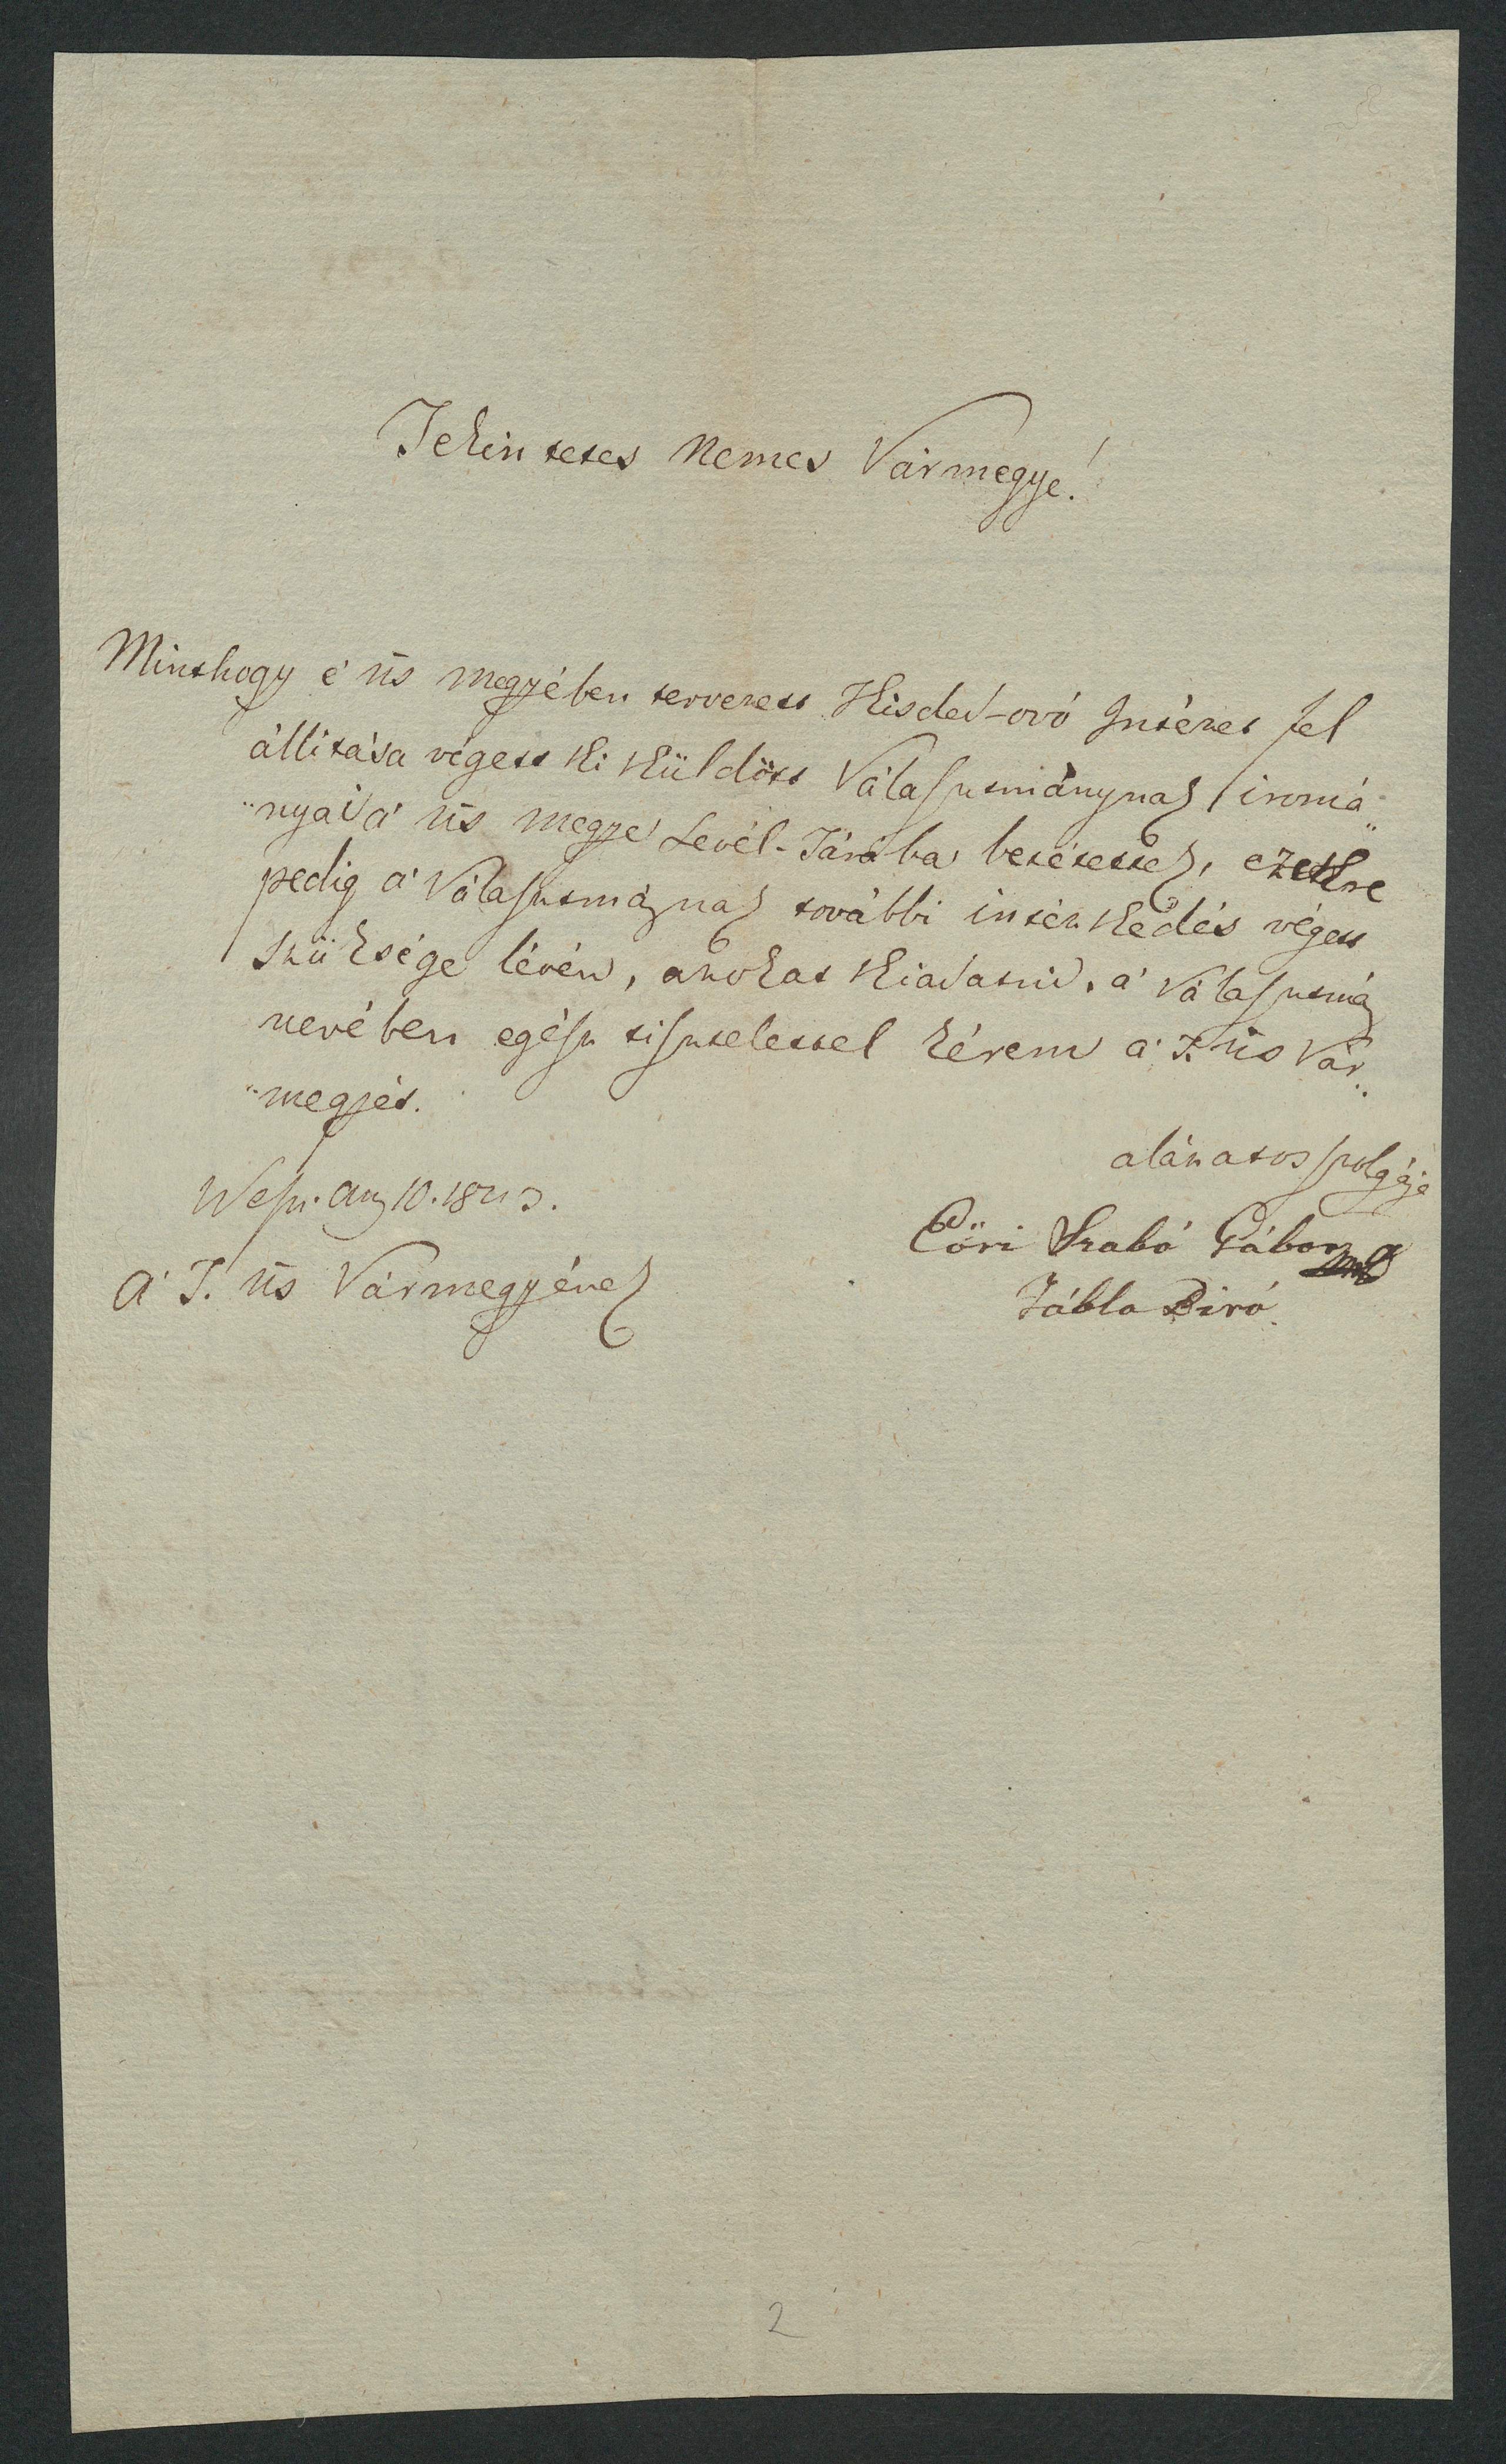 Tekintetes Nemes Vármegye!
Minthogy e' Ns Megyében tervezett Kisded-ovó Intézet fel
állitása végett ki küldött Választmánynak iromá„
„nyai a' Ns Megye Levél-Tárába betétettek, ezekre
pedig a' Választmánynak további intézkedés végett
szüksége lévén, azokat kiadatni, a' Választmány
nevében egész tisztelettel kérem a' T. Ns Vár„
„megyét.
alázatos szolgája
Veszp. Aug 10. 1843.
Cöri Szabó Gábor mk
A' T. Ns Vármegyének
Tábla Biró.
2